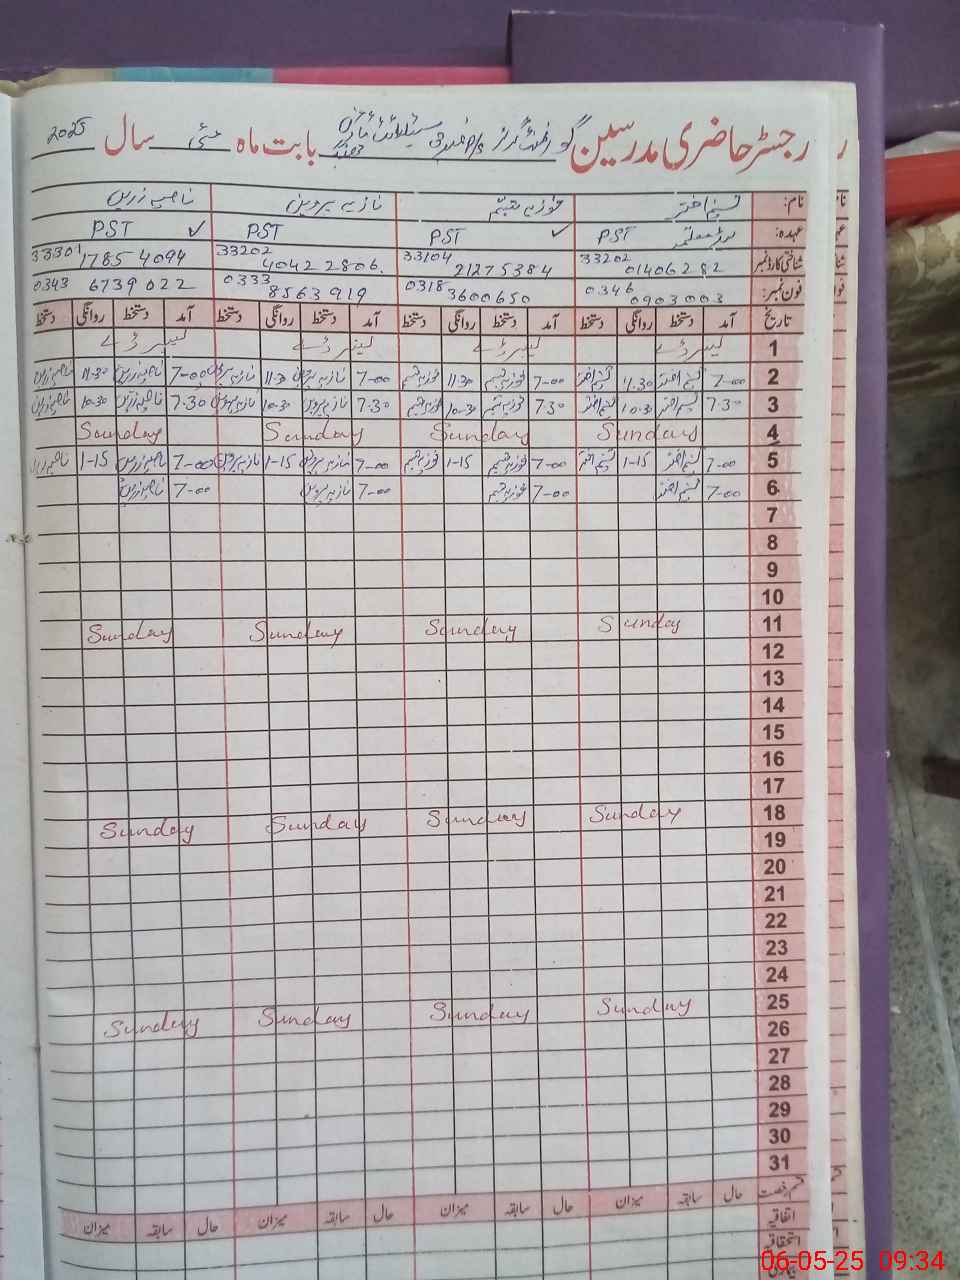 رجسٹر حاضری مدرسین گورنمنٹ گرلز P/S نمبر 3 سیٹلائٹ ٹاؤن جھنگ بابت ماہ مئی سال 2025
نام: تسنیم اختر فوزیہ تبسم نازیہ پروین ناصرہ زرین
عہدہ: ہیڈ معلمہ PST PST PST PST
شناختی کارڈ نمبر 33202 01406282 33104 21275384 33202 40422806 33301 17854094
فون نمبر: 0346 0903003 0318 3600650 0333 8563919 0343 6739022
تاریخ آمد دستخط روانگی دستخط آمد دستخط روانگی دستخط آمد دستخط روانگی دستخط آمد دستخط روانگی دستخط
1 لیبر ڈے لیبر ڈے لیبر ڈے لیبر ڈے
2 7-00 تسنیم اختر 11.30 تسنیم اختر 7-00 فوزیہ تبسم 11.30 فوزیہ تبسم 7-00 نازیہ پروین 11.30 نازیہ پروین 7-00 ناصرہ زرین 11.30 ناصرہ زرین
3 7.30 تسنیم اختر 10.30 تسنیم اختر 7.30 فوزیہ تبسم 10-30 فوزیہ تبسم 7.30 نازیہ پروین 10-30 نازیہ پروین 7.30 ناصرہ زرین 10.30 ناصرہ زرین
4 Sunday Sunday Sunday Sunday
5 7-00 تسنیم اختر 1-15 تسنیم اختر 7-00 فوزیہ تبسم 1-15 فوزیہ تبسم 7-00 نازیہ پروین 1-15 نازیہ پروین 7-00 ناصرہ زرین 1-15 ناصرہ زرین
6 7-00 تسنیم اختر 7-00 فوزیہ تبسم 7-00 نازیہ پروین 7-00 ناصرہ زرین
7
8
9
10
11 Sunday Sunday Sunday Sunday
12
13
14
15
16
17
18 Sunday Sunday Sunday Sunday
19
20
21
22
23
24
25 Sunday Sunday Sunday Sunday
26
27
28
29
30
31
قسم رخصت حال سابقہ میزان حال سابقہ میزان حال سابقہ میزان حال سابقہ میزان
اتفاقیہ
استحقاقیہ
06-05-25 09:34